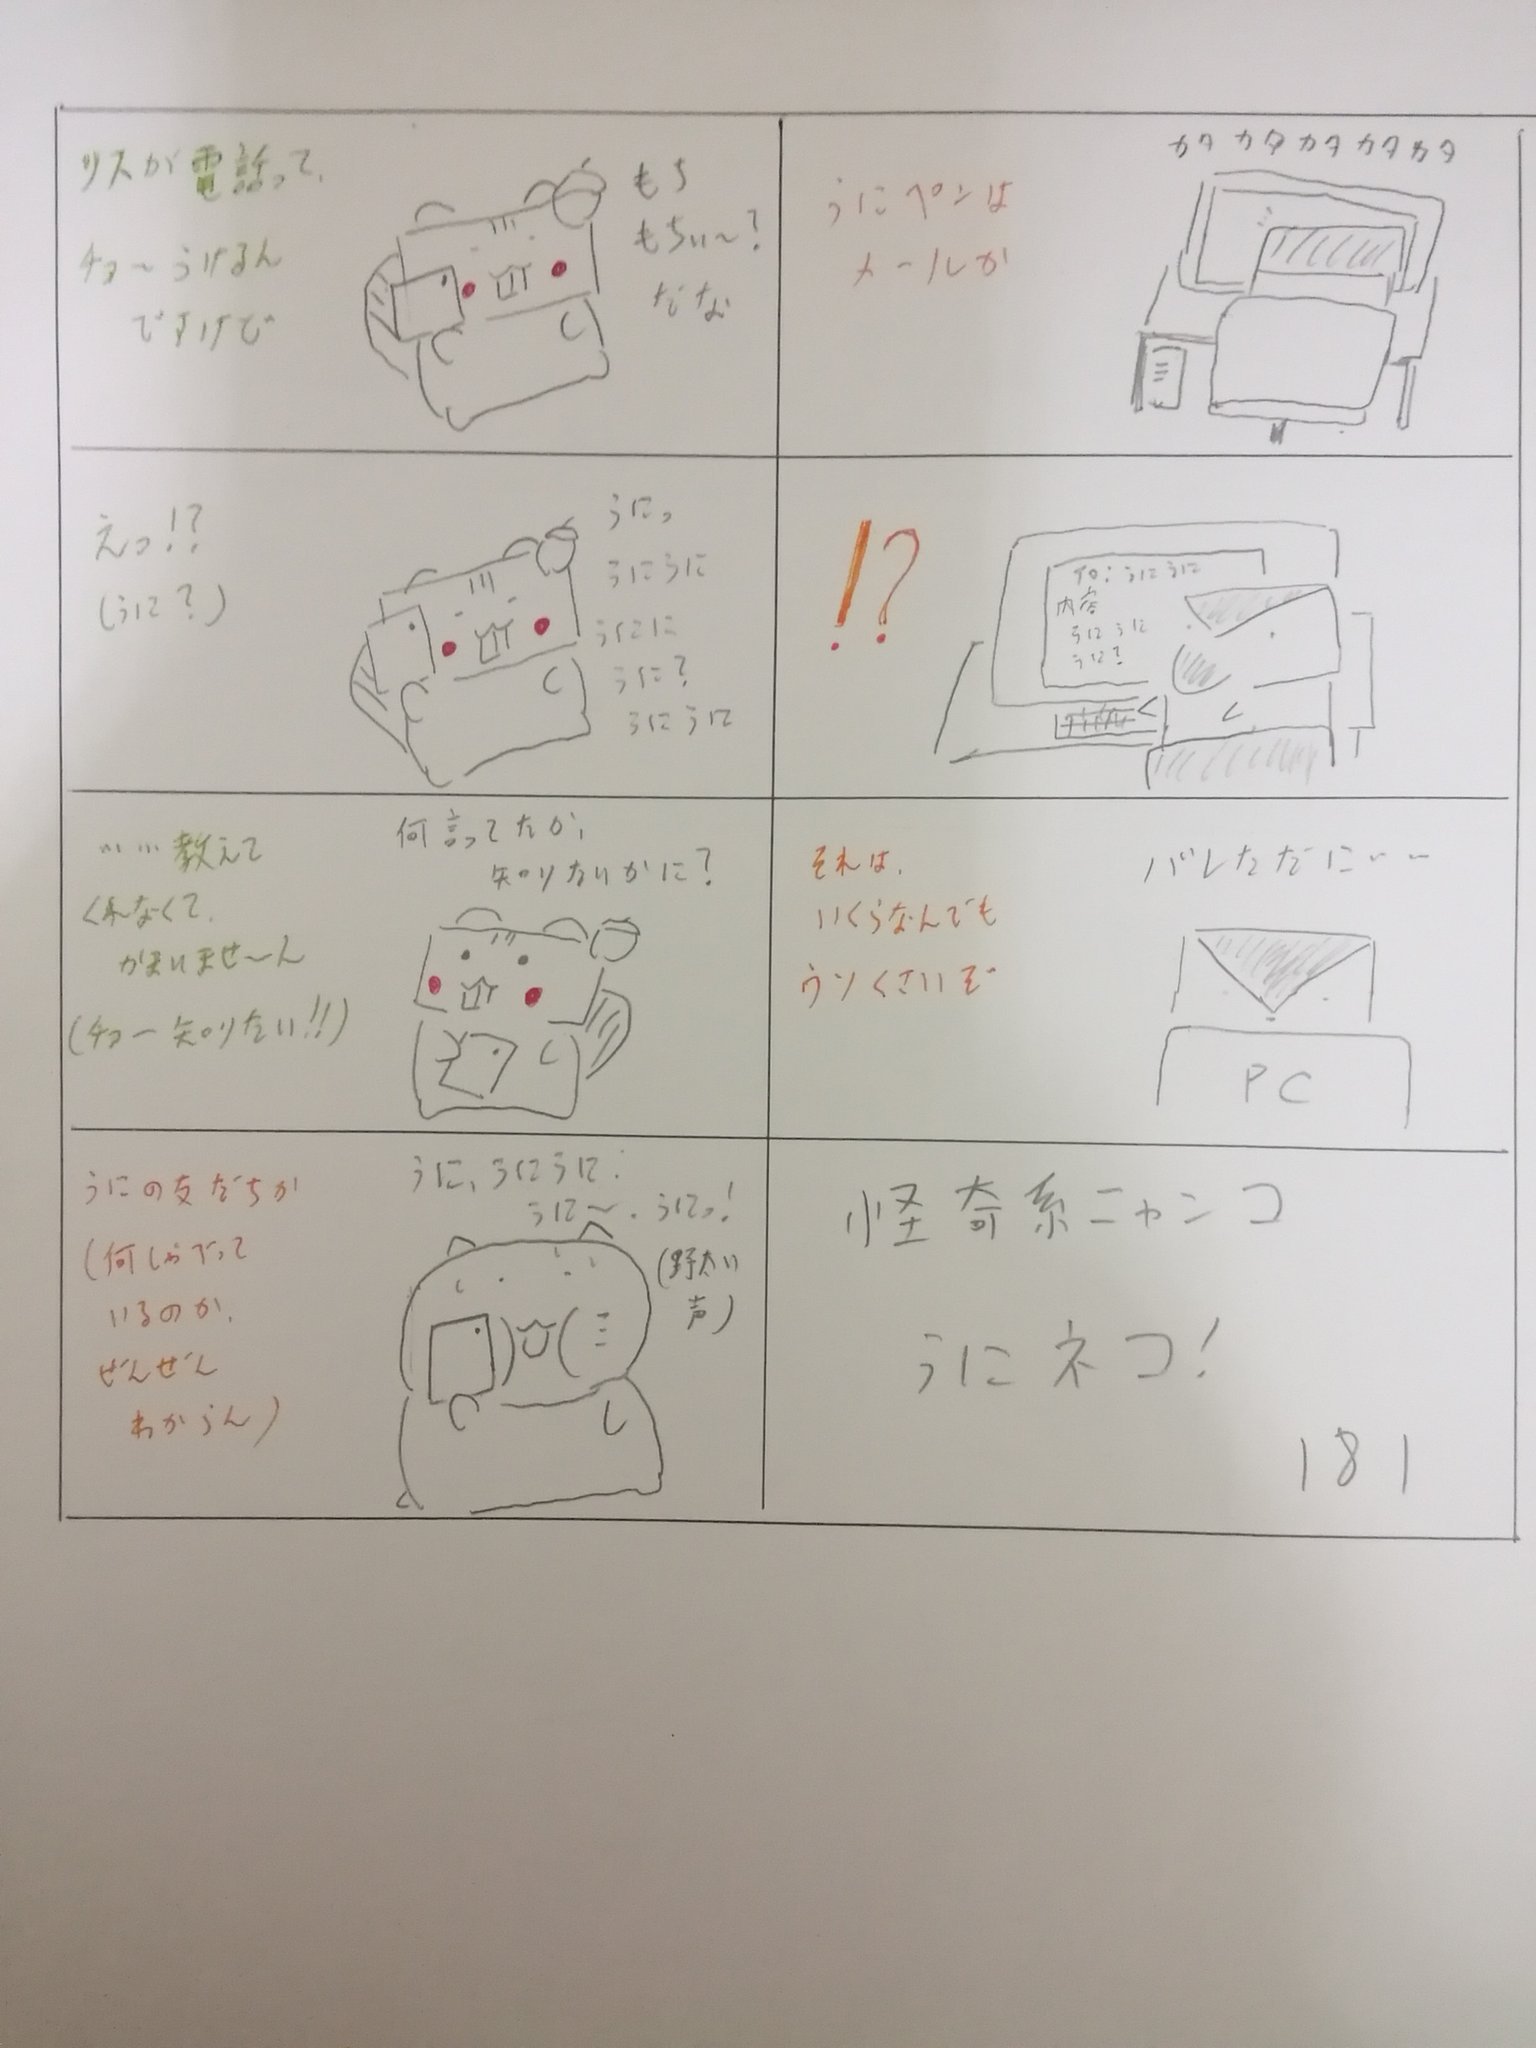 リスが電話って、
チョ〜うけるん
ですけど
もち
もちぃ〜?
だな
えっ!?
(うに?)
うにっ
うにうに
うにに
うに?
うにうに
……教えて
くれなくて、
かまいませ〜ん
(チョー知りたい!!)
何言ってたか、
知りたいかに?
うにの友だちか
(何しゃべって
いるのか、
ぜんぜん
わからん)
うに、うにうに!
うに〜、うにっ!
(野太い
声)
うにペンは
メールか
カタカタカタカタカタ
!?
うにうに
内容
うにうに
うに?
それは、
いくらなんでも
ウソくさいぞ
バレただに……
PC
怪奇系ニャンコ
うにネコ!
181